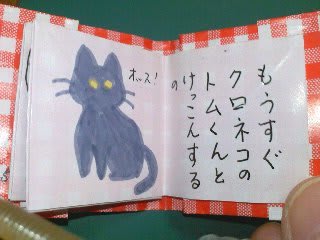 オッス!
もうすぐ
クロネコの
トムくんと
けっこんする
の